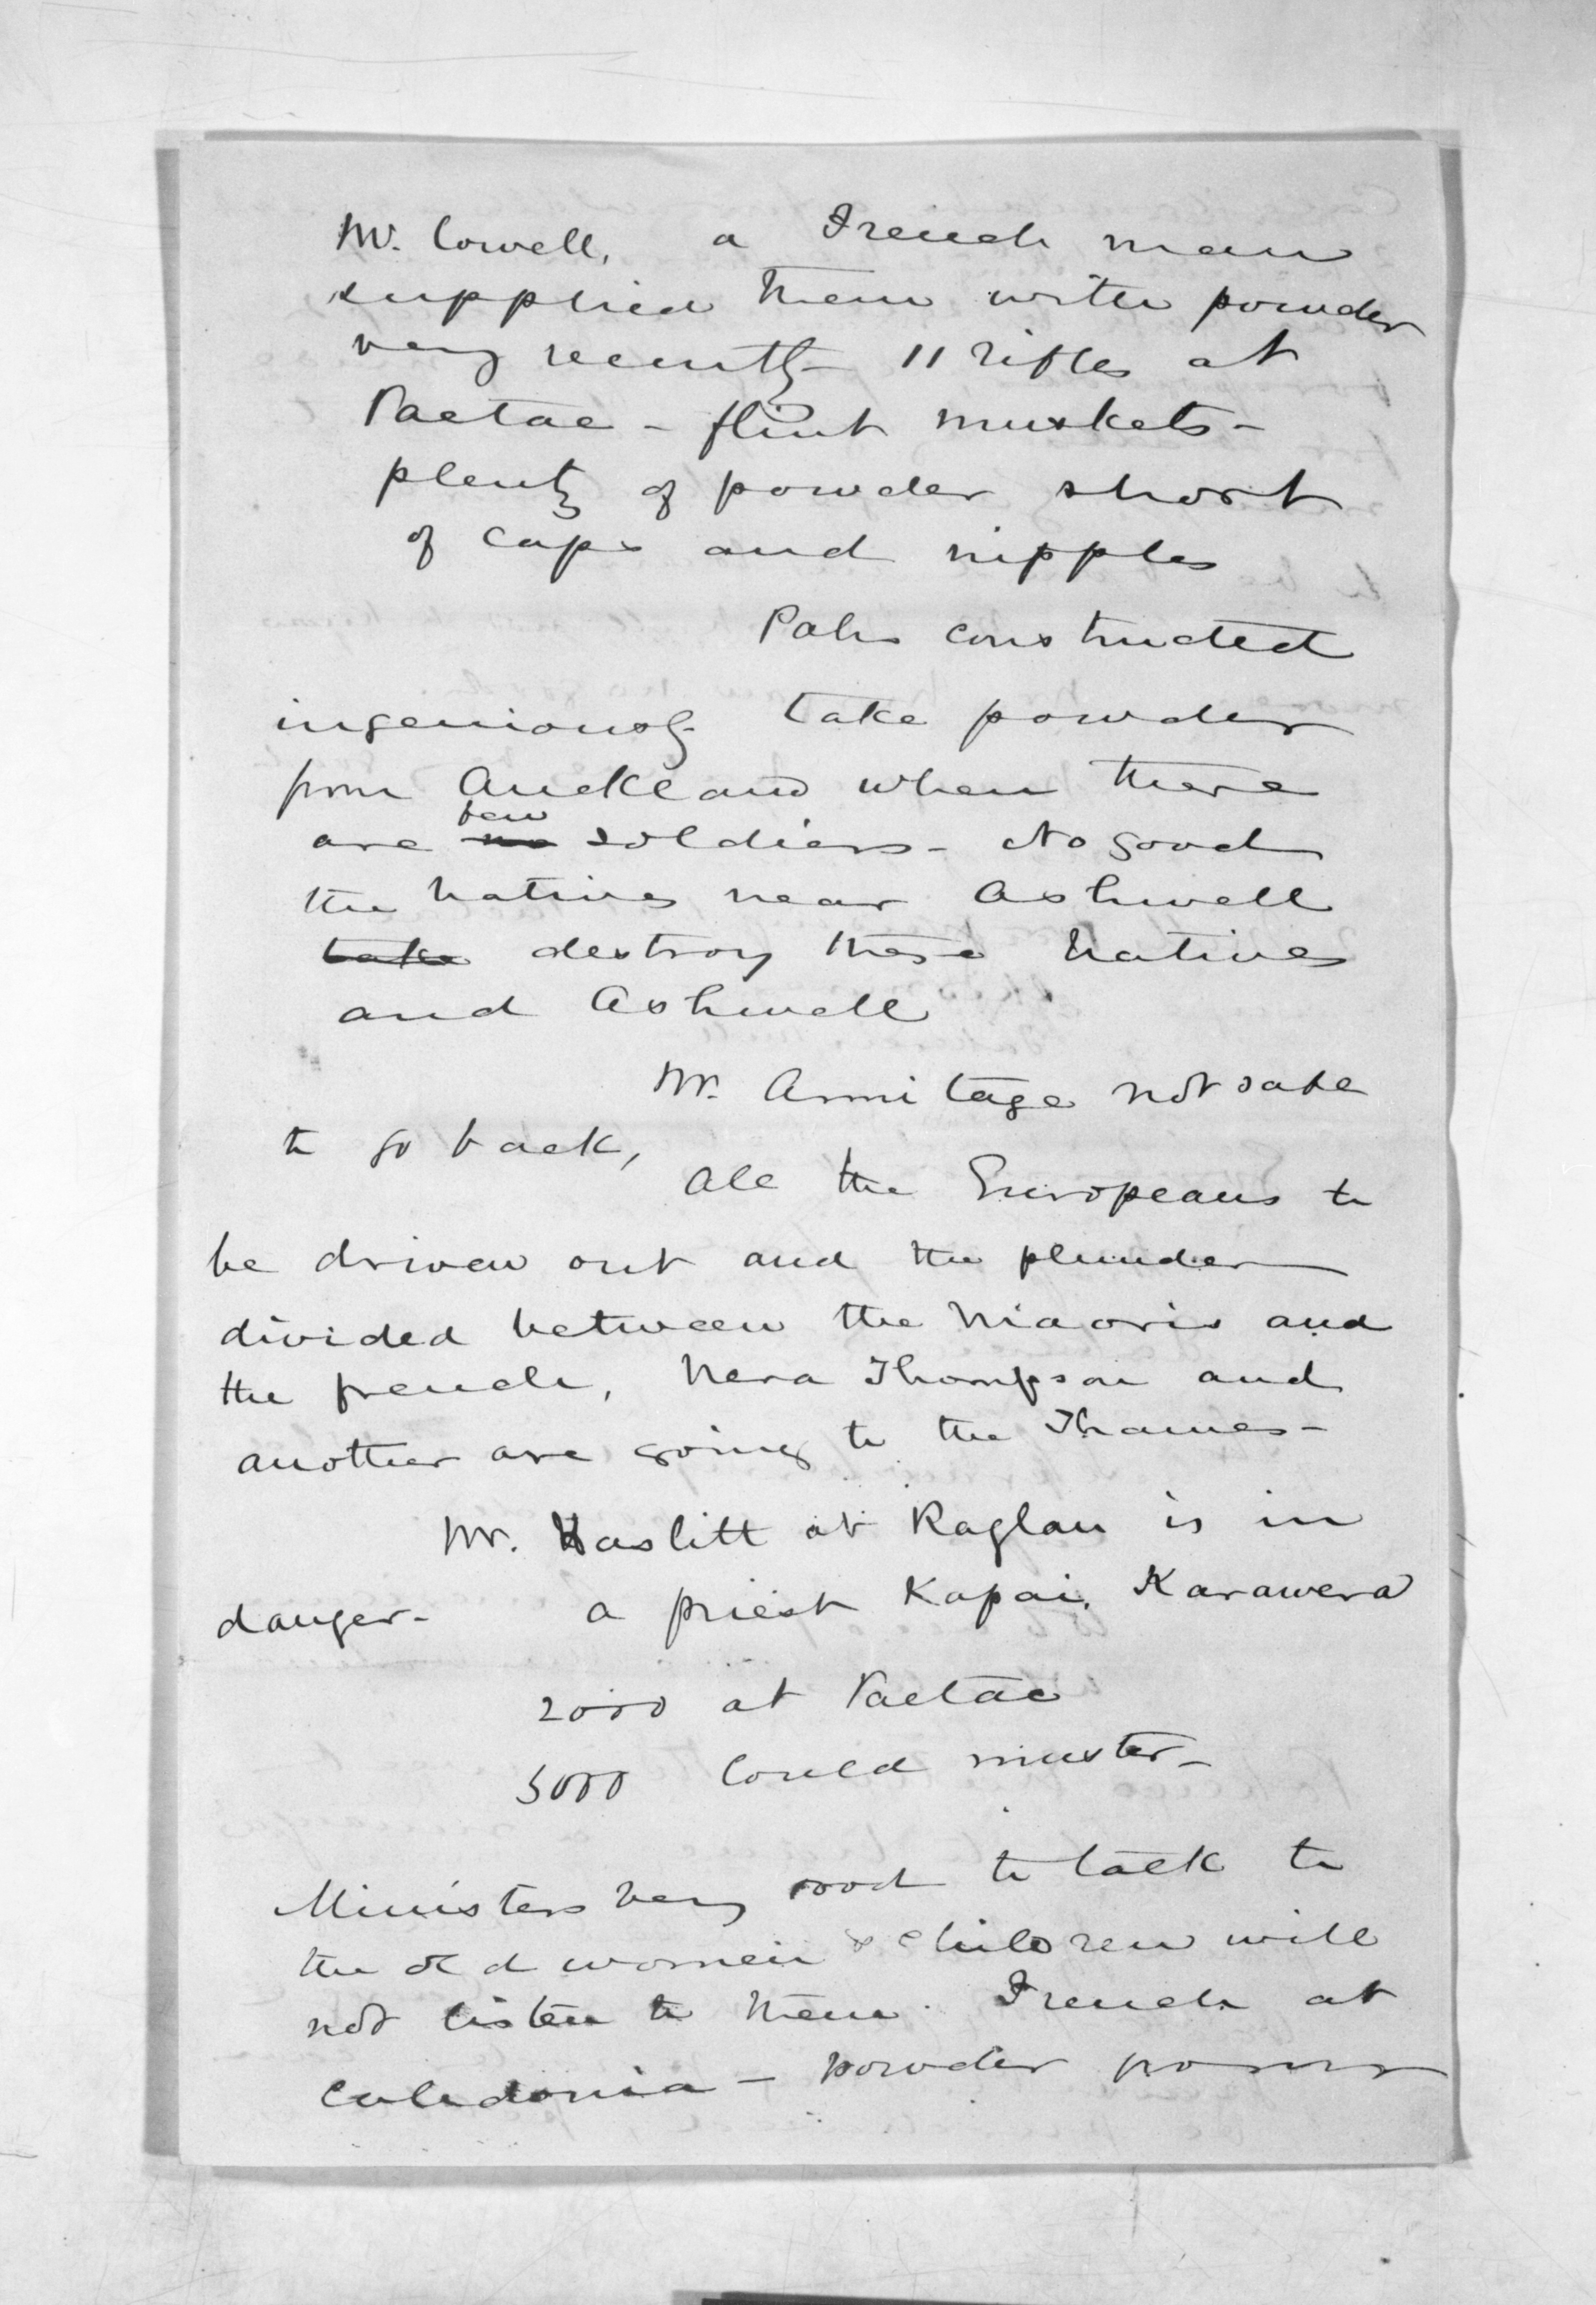 Mr. Cowell, a French man
supplied them with powder
very recently - 11 rifles at
Paetae - flint muskets -
plenty of powder short
of caps and nipples
Pahs constructed
ingeniously take powder
from Auckland when there
are no few soldiers - No good
the natives near Ashwell
take destroy these natives
and Ashwell
Mr. Armitage not safe
to go back,
All the Europeans to
be driven out and the plunder
divided between the Maoris and
the french, Nera Thompson and
another are going to the Thames -
Mr. Haslitt at Raglan is in
danger - a priest Kapai, Karawera
2000 at Paetae
5000 Could muster -
Ministers very good to talk to
the old women & children will
not listen to them. French at
Caledonia - powder